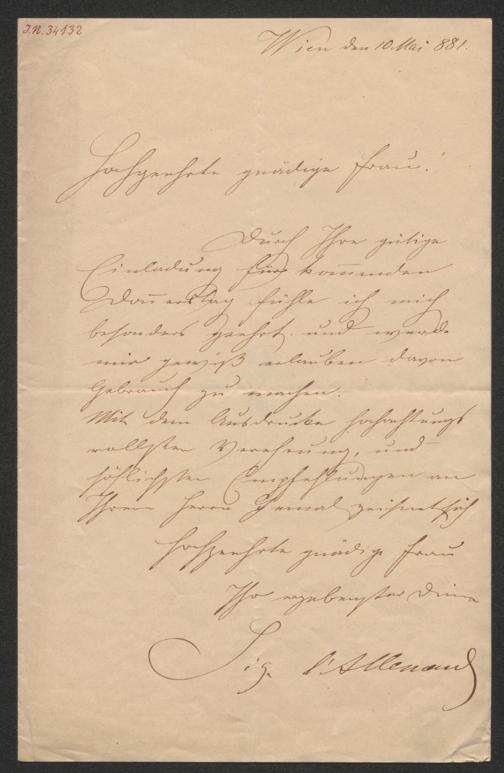 I.N. 34132
Wien den 10. Mai 881.
Hochgeehrte gnädige Frau!
Durch Ihre gütige
Einladung fürs kom̄enden
Don̄erstag fühle ich mich
besonders geehrt und werde
mir gewiß erlauben davon
Gebrauch zu machen.
Mit dem Ausdrucke hochachtungs
vollster Verehrung, und
höflichsten Empfehlungen an
Ihren Herrn Gemal zeichnet sich
hochgeehrte gnädige Frau
Ihr ergebenster Diener
Sig. l'Allemand